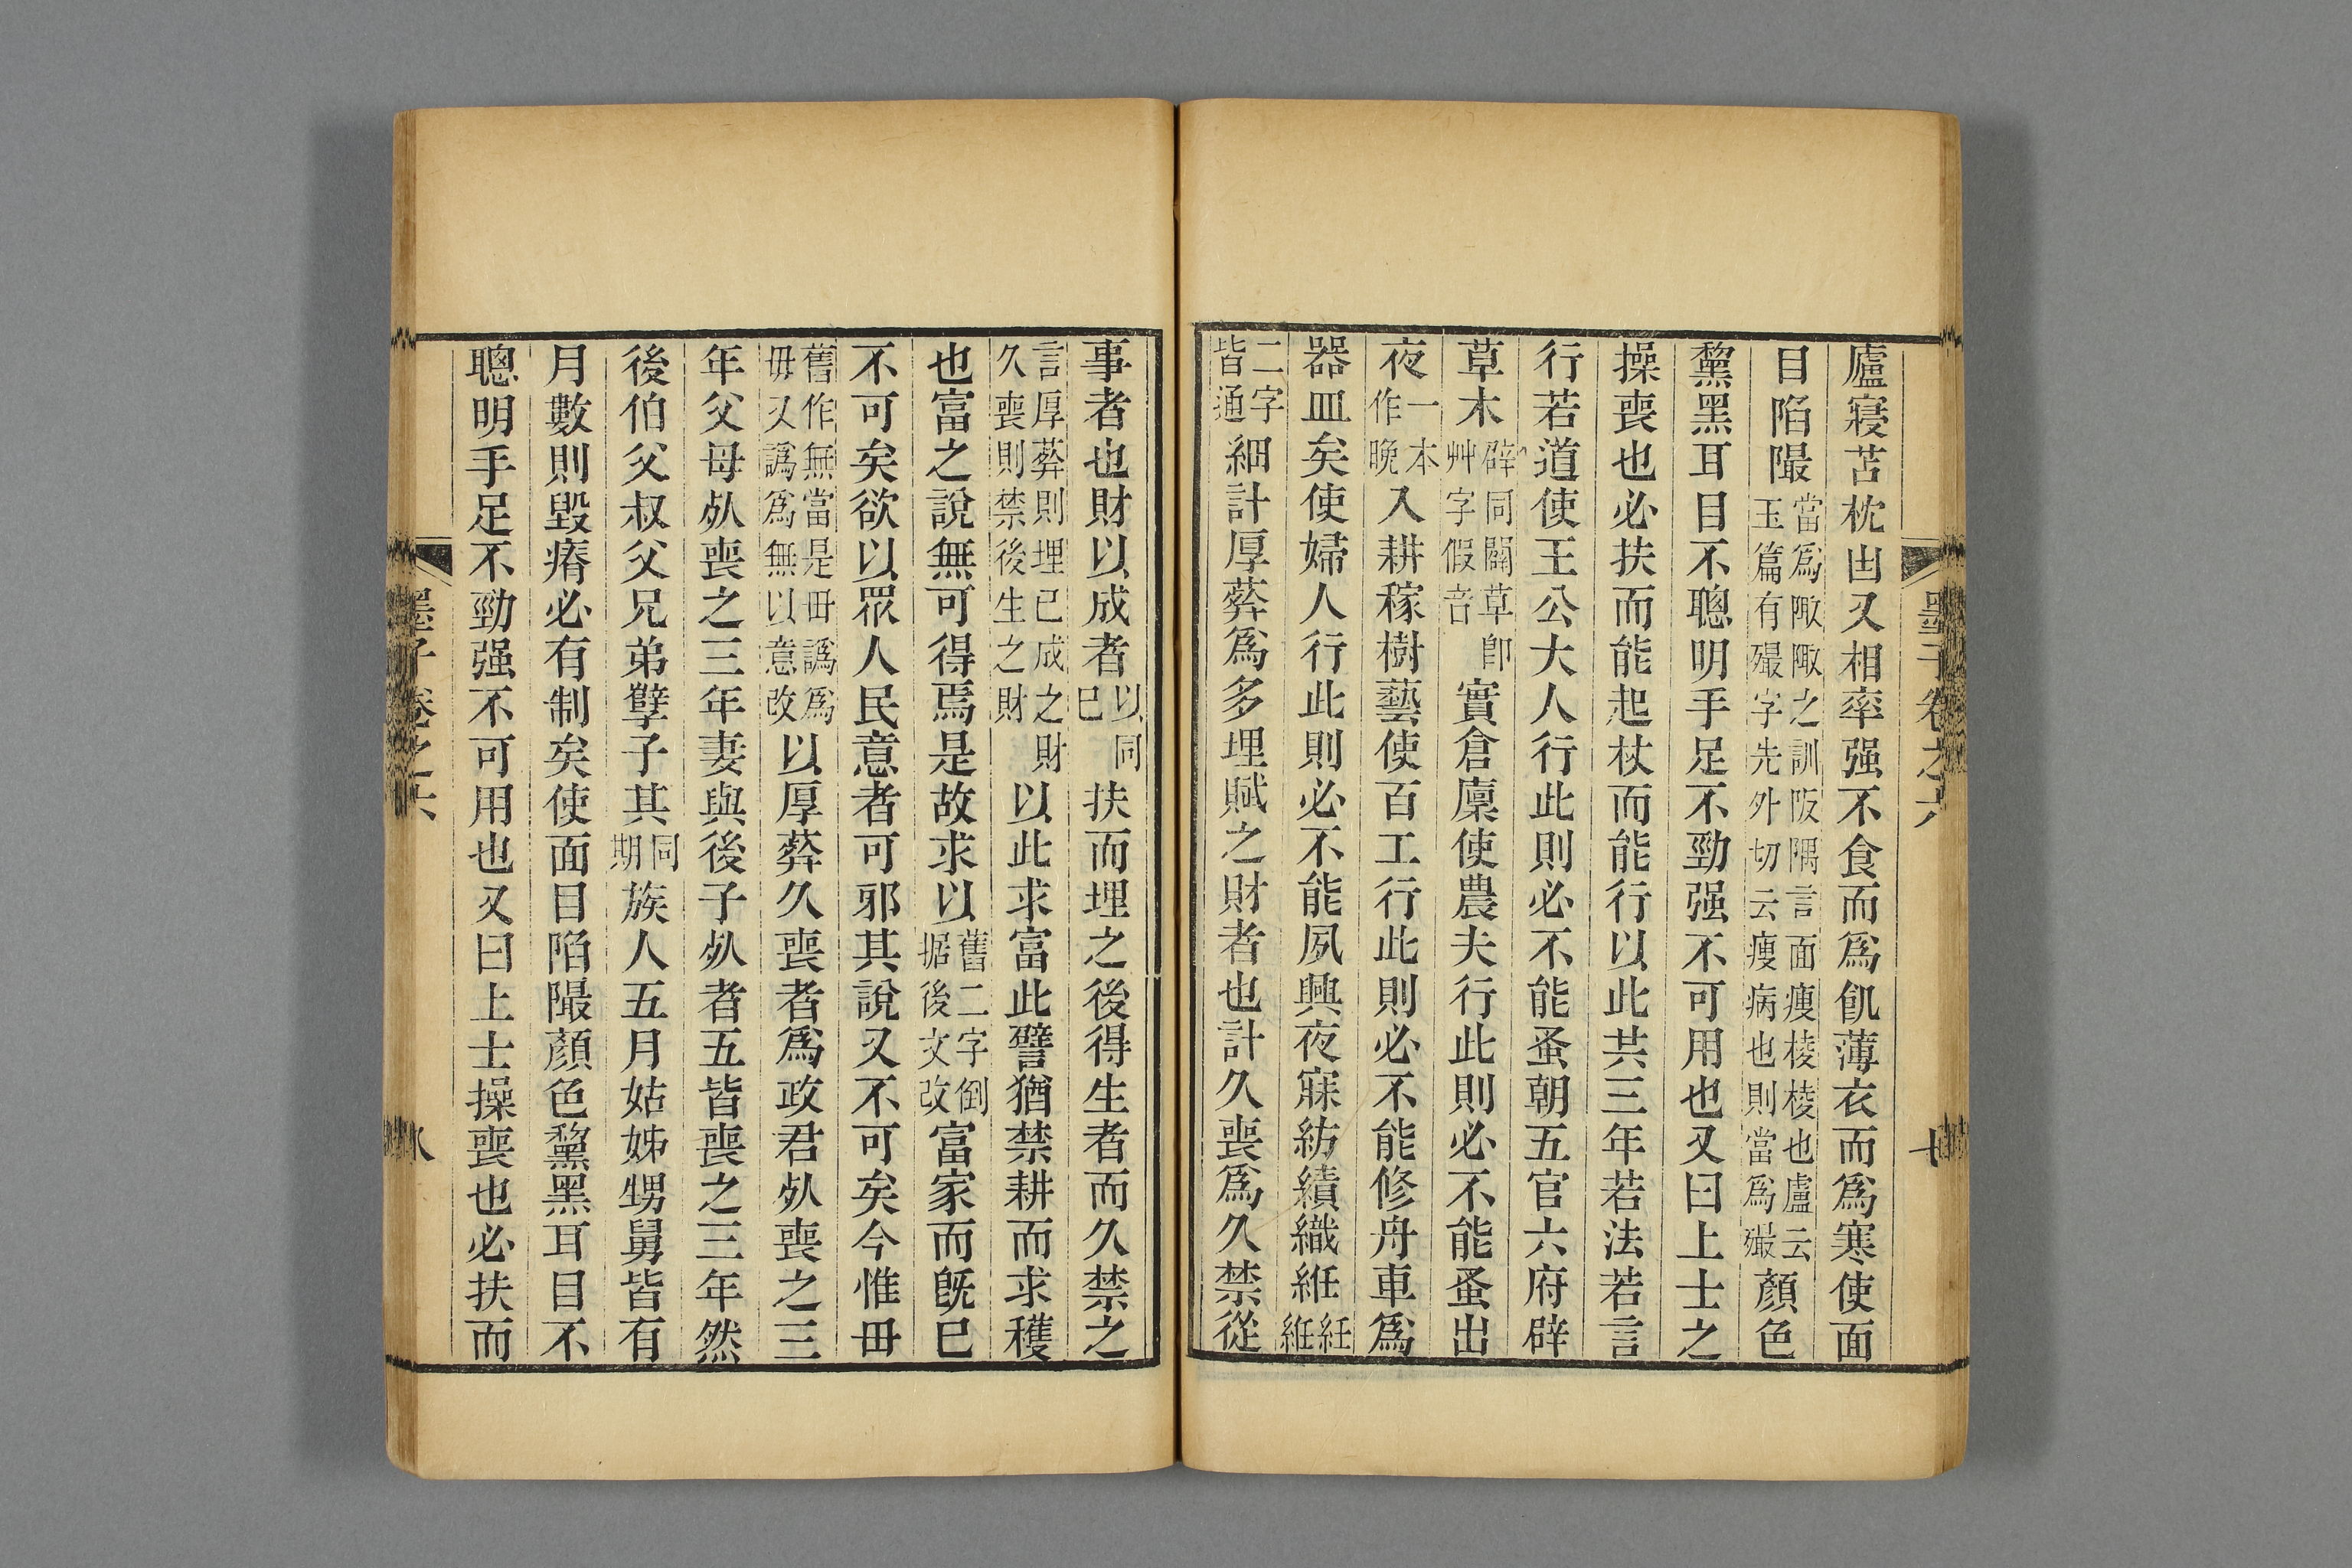 廬寝苫枕凷又相率强不食而爲飢薄衣而爲寒使面
目陷陬當爲陬陬之訓阪隅言面瘦棱棱也盧云玉篇有㝡字先外切云瘦病也則當爲㝡顏色
黧黑耳目不聰明手足不勁强不可用也又曰上士之
操喪也必扶而能起杖而能行以此共三年若法若言
行若道使王公大人行此則必不能蚤朝五官六府辟
草木辟同闢草卽艸字假音實倉廩使農夫行此則必不能蚤出
夜一本作晚入耕稼樹藝使百工行此則必不能修舟車爲
器皿矣使婦人行此則必不能夙興夜寐紡績織紝紝絍
二字皆通細計厚葬爲多埋賦之財者也計久喪爲久禁從
墨子卷之六
事者也財以成者以同已扶而埋之後得生者而久禁之
言厚葬則埋已成之財久喪則禁後生之財以此求富此譬猶禁耕而求穫
也富之說無可得焉是故求以舊二字倒据後文改富家而既已
不可矣欲以眾人民意者可邪其說又不可矣今惟毌
舊作無當是毌譌爲毋又譌爲無以意改以厚葬久喪者爲政君𣦸喪之三
年父母𣦸喪之三年妻與後子𣦸者五皆喪之三年然
後伯父叔父兄弟孼子其同期族人五月姑姊甥舅皆有
月數則毀瘠必有制矣使面目陷陬顏色黧黑耳目不
聰明手足不勁强不可用也又曰上士操喪也必扶而
墨子卷之六